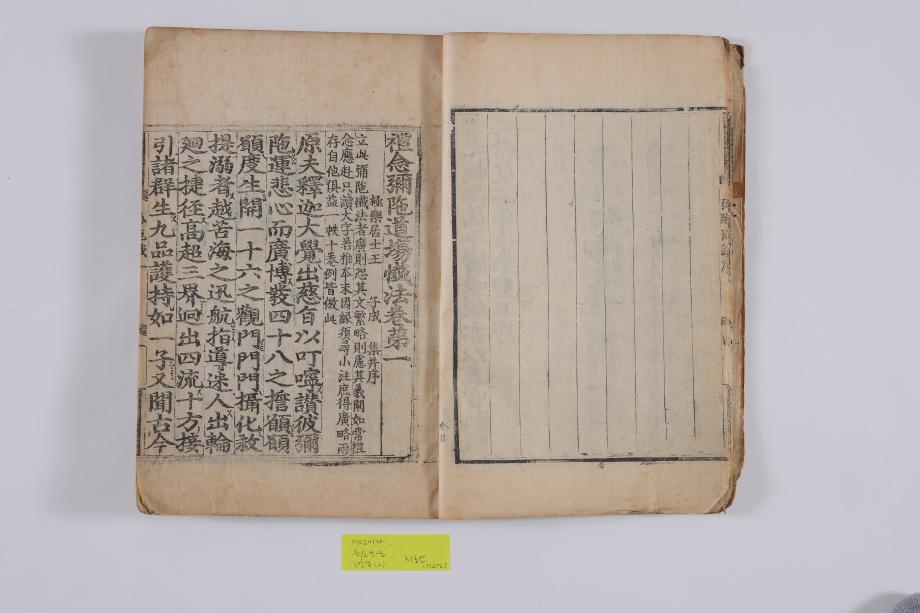 禮念彌陁道場懺法卷苐一
極樂居士王 子成 集并序
立此彌陁懺法者廣則恐其文繁略則慮其義闕如常禮
念應赴只讀大字若推本末因緣須尋小注庶得廣略兩
存自他俱益一帙十卷例皆倣此
原夫釋迦大覺出慈自以叮嚀讃彼彌
陁運悲心而廣博發四十八之擔願願
願度生開一十六之觀門門門攝化救
提溺者越苦海之迅航指導迷人出輪
廻之捷徑高超三界迥出四流十方接
引諸群生九品護持如一子又聞古今